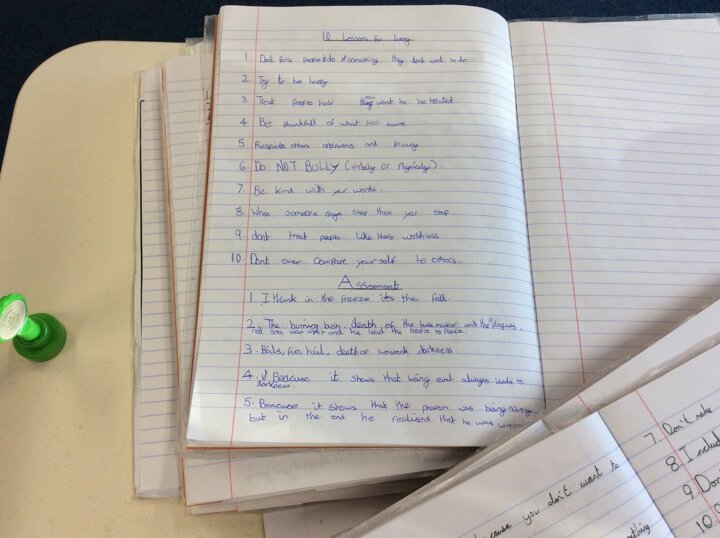 10 Lessons for living
1 Dont force people to do something they dont want to do
2. Try to be happy
3 Treat people how you want to be treated
4 Be thankfull of what you have
5 Respects others oppinions and Privacy
6. Do NOT BULLY (Virbaly or Physicaly).
7. Be kind with your words.
8. When someone says stop then you stop.
9 dont treat people like there worthless
10. Dont ever compare yourself to others.
Assesment
1 I think in the freeze its the fall.
2. The burning bush, death of the taskmaster and the plagues,
red sea was split and he lead the people to
3. Boils, fire hail, death of livestock, darkness.
4. Beacuse it shows that being evil always leads to
darkness.
5. Beacuse it shows that the pharoh was being nasty
but in the end he realised that he was
7. Don't
8. I
9.
10.
because you don't want to
something